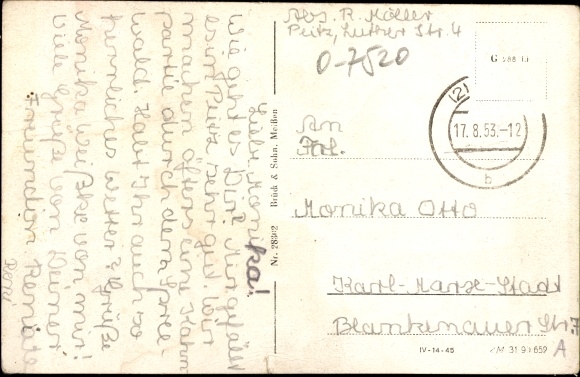 Abs. R. Möller
Peitz, Luther Str. 4
0-7520
G 288 D
(2)
17.8.53.-12
b
An
Frl.
Monika Otto
Karl-Marx-Stadt
Blankenauer Str. 7
A
IV-14-45 31 9 659
Nr. 28362 Brück & Sohn, Meißen
Liebe Monika!
Wie geht es Dir? Mir gefällt
es in Peitz sehr gut. Wir
machen öfters eine Kahn
partie durch den Spree-
wald. Habt Ihr auch so
herrliches Wetter? Grüße
Monika Weißke von mir!
Viele Grüße von Deiner
Freundin Renate